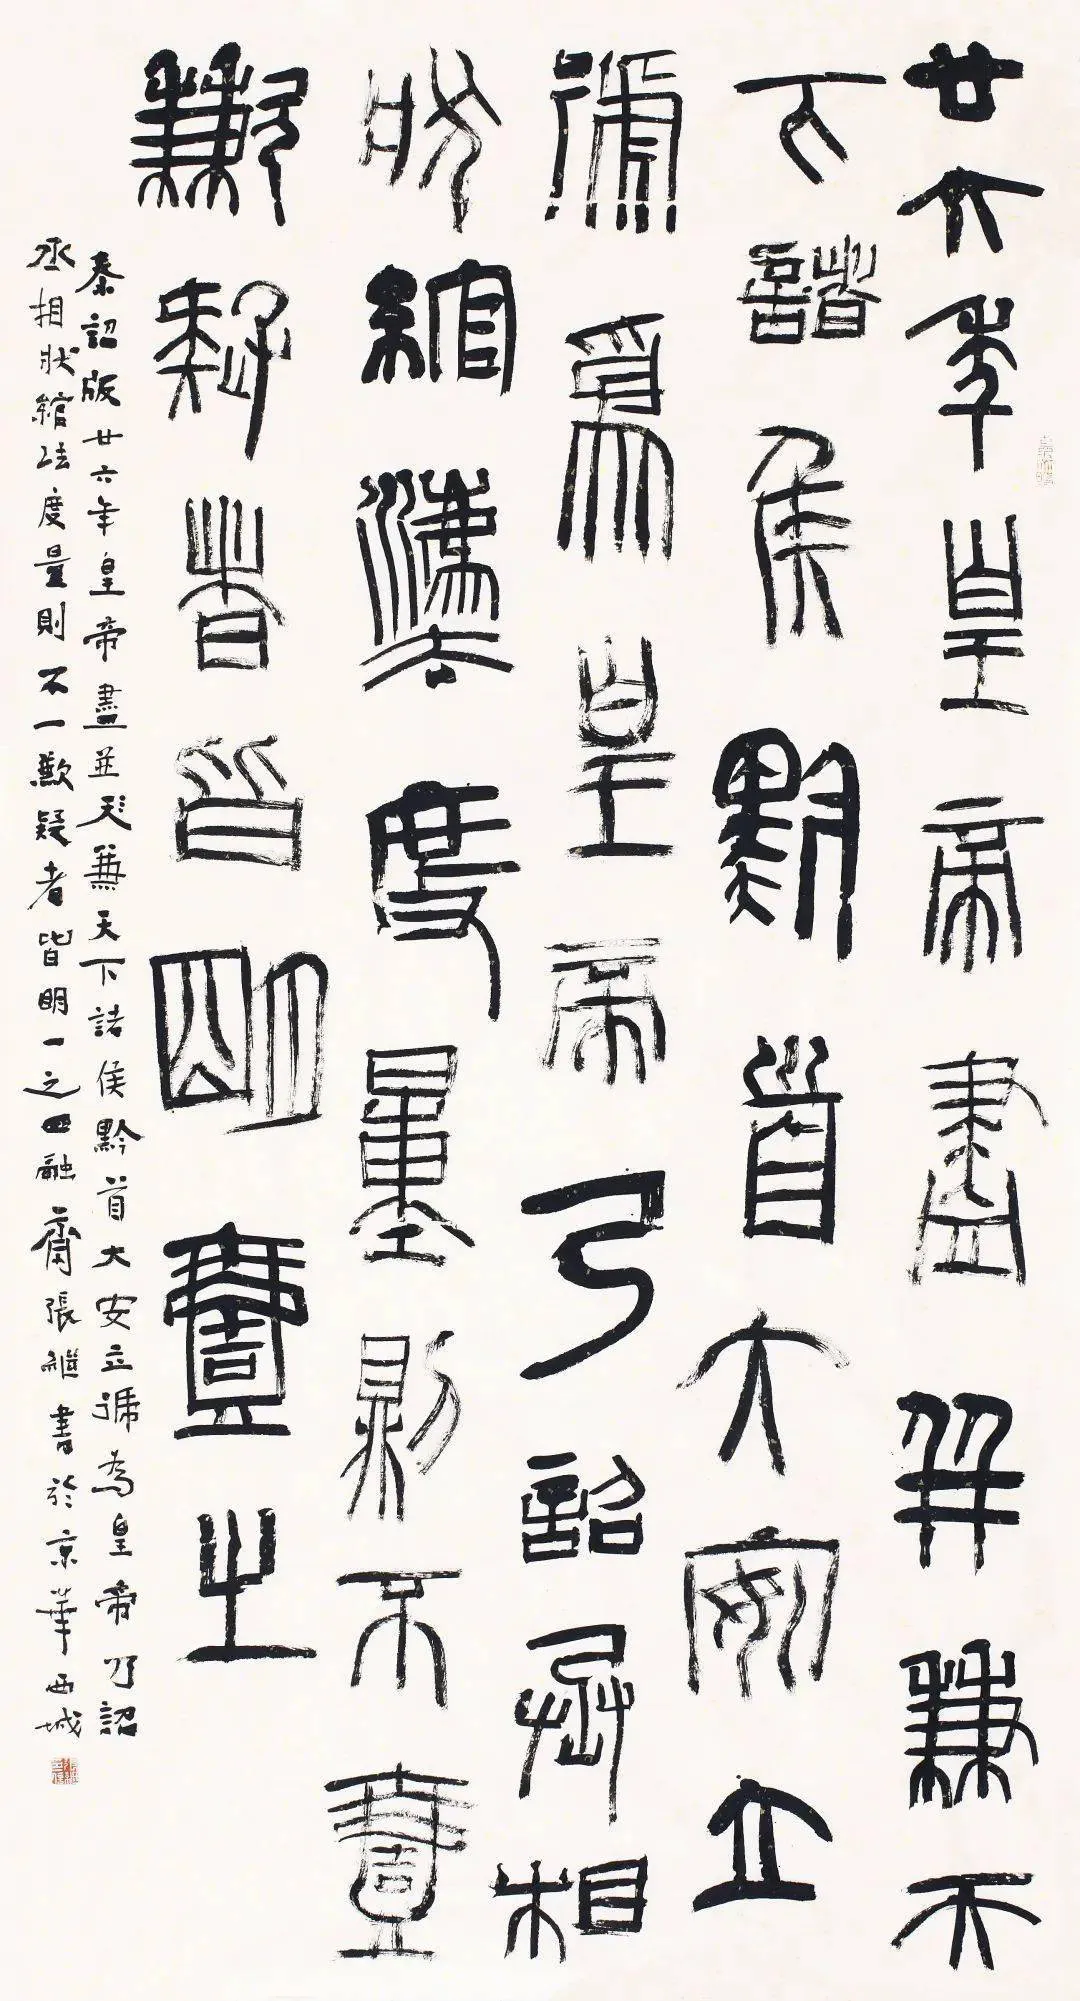 廿六年皇帝盡并兼天
下諸侯黔首大安立
號爲皇帝乃詔丞相
狀綰灋度量則不壹
歉疑者皆明壹之
秦詔版廿六年皇帝盡並兼天下諸侯黔首大安立號為皇帝乃詔
丞相狀綰法度量則不一歉疑者皆明一之四融齋張繼書於京華西城